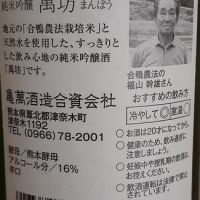 純米吟醸 萬坊 まんぼう
地元の「合鴨農法栽培米」と
天然水を使用した、すっきりし
た飲み心地の純米吟醸酒
「萬坊」です。
亀萬酒造合資会社
熊本県葦北郡津奈木町
津奈木1192
TEL (0966)78-2001
酵母/熊本酵母
アルコール分/16%
辛口
合鴨農法の
福山 幹雄さん
おすすめの飲み方
冷やして○室温○
●お酒は20才になってから。
●健康のため、飲み過ぎに
注意しましょう。
●妊娠中や授乳期の飲酒は、
お控えください。
●飲酒運転は法律で禁
されています。